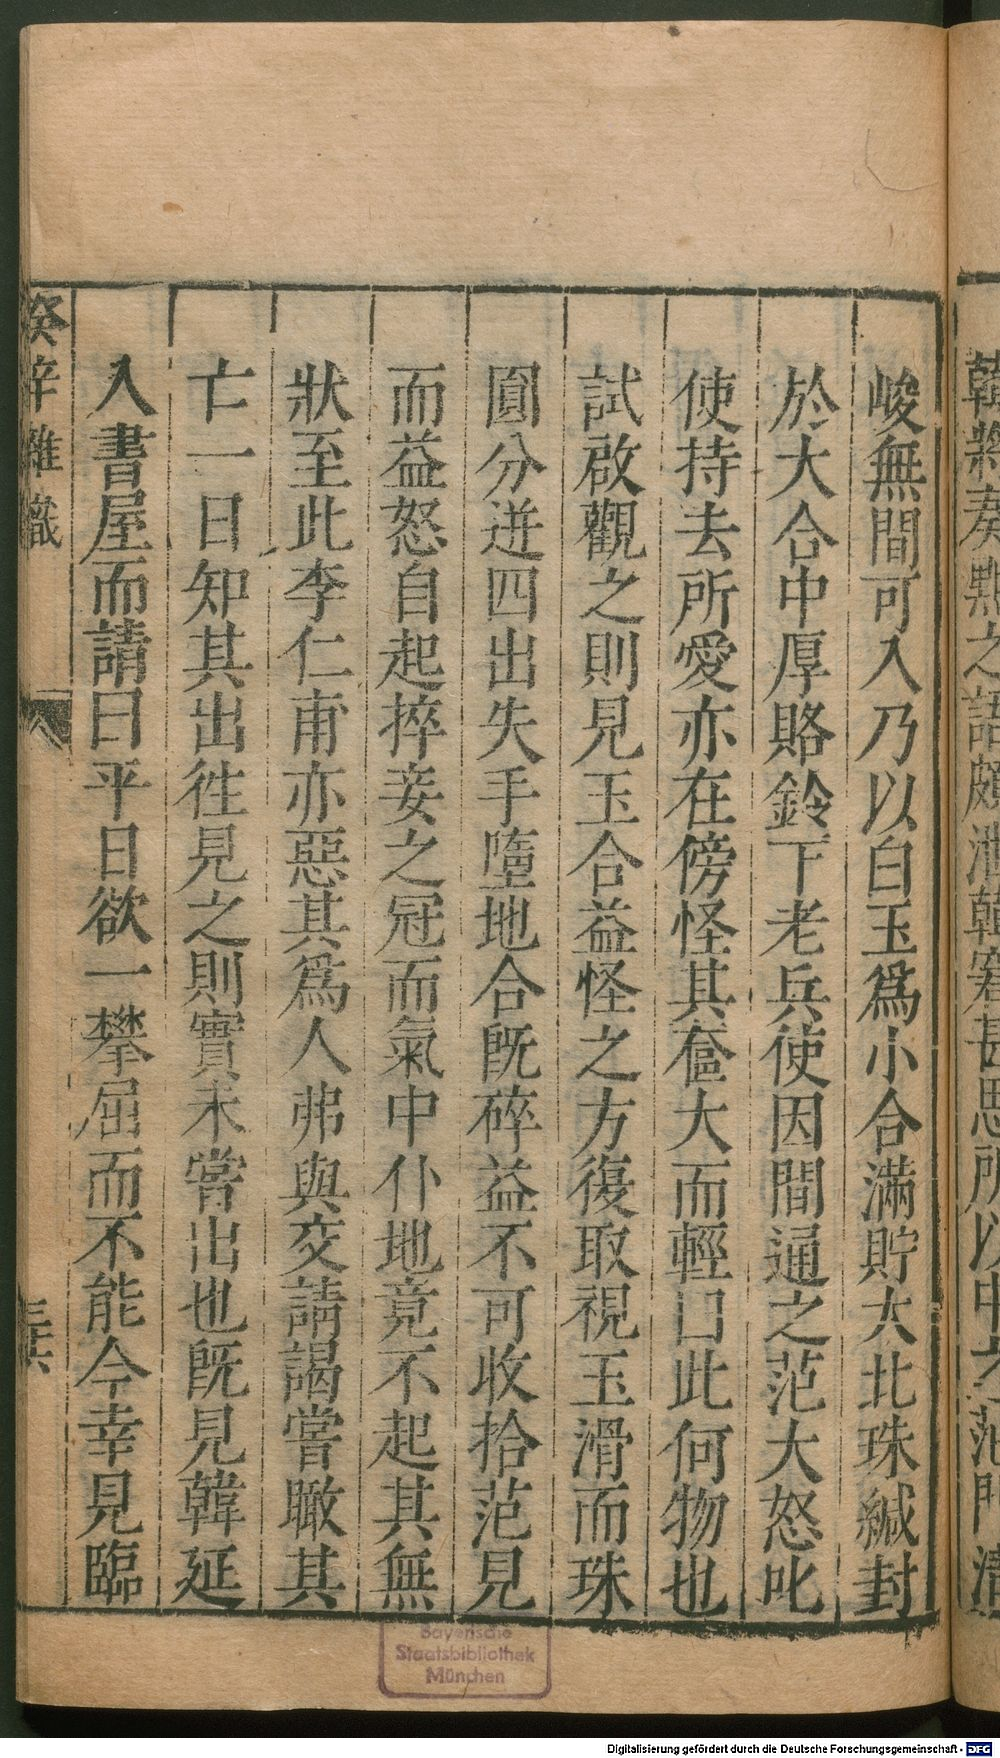 韓將奏黜之語頗泄韓窘甚思所以中之范門清
峻無間可入乃以白玉爲小合滿貯大北珠緘封
於大合中厚賂鈴下老兵使因間通之范大怒叱
使持去所愛亦在傍怪其奩大而輕曰此何物也
試啟觀之則見玉合益怪之方復取視玉滑而珠
圓分迸四出失手墮地合既碎益不可收拾范見
而益怒自起捽妾之冠而氣中仆地竟不起其無
狀至此李仁甫亦惡其爲人弗與交請謁嘗瞰其
亡一日知其出徃見之則實未嘗出也既見韓延
入書屋而請曰平日欲一攀屈而不能今幸見臨
癸辛雜識 三六
Bayerische
Staatsbibliothek
München
Digitalisierung gefördert durch die Deutsche Forschungsgemeinschaft - DFG